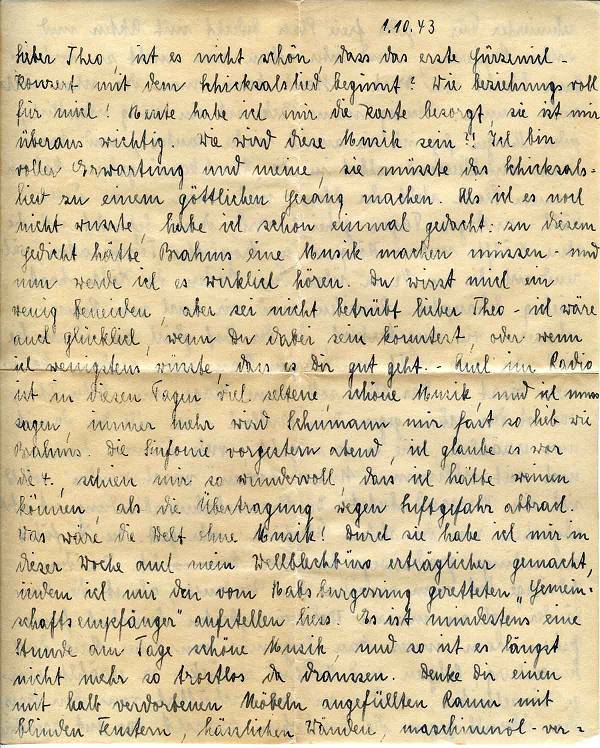 1.10.43
Lieber Theo, ist es nicht schön, dass das erste Gürzenich-
Konzert mit dem Schicksalslied beginnt? Wie beziehungsvoll
für mich! Heute habe ich mir die Karte besorgt, sie ist mir
überaus wichtig. Wie wird diese Musik sein?! Ich bin
voller Erwartung und meine, sie müsste das Schicksals-
lied zu einem göttlichen Gesang machen. Als ich es noch
nicht wusste, habe ich schon einmal gedacht: zu diesem
Gedicht hätte Brahms eine Musik machen müssen - und
nun werde ich es wirklich hören. Du wirst mich ein
wenig beneiden, aber sei nicht betrübt lieber Theo - ich wäre
auch glücklich, wenn Du dabei sein könntest, oder wenn
ich wenigstens wüsste, dass es Dir gut geht. - Auch im Radio
ist in diesen Tagen viel seltene, schöne Musik, und ich muss
sagen, immer mehr wird Schumann mir fast so lieb wie
Brahms. Die Sinfonie vorgestern abend, ich glaube es war
die 4., schien mir so wundervoll, dass ich hätte weinen
können, als die Übertragung wegen Luftgefahr abbrach.
Was wäre die Welt ohne Musik! Durch sie habe ich mir in
dieser Woche auch mein Wellblechbüro erträglicher gemacht,
indem ich mir den vom Habsburgerring geretteten „Gemein-
schaftsempfänger" aufstellen liess. Es ist mindestens eine
Stunde am Tage schöne Musik, und so ist es längst
nicht mehr so trostlos da draussen. Denke Dir einen
mit halb verdorbenen Möbeln angefüllten Raum mit
blinden Fenstern, hässlichen Wänden, maschinenöl-ver-